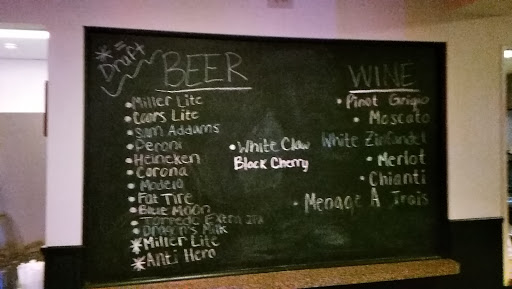 *= Draft
BEER
• Miller Lite
• Coors Lite
• Sam Addams
• Peroni
• Heineken
• Corona
• Modelo
• Fat Tire
• Blue Moon
• Torpedo Extra IPA
• Dragon's Milk
* Miller Lite
* Anti Hero
• White Claw
Black Cherry
WINE
• Pinot Grigio
• Moscato
White Zinfandel
• Merlot
• Chianti
• Menage A Trois